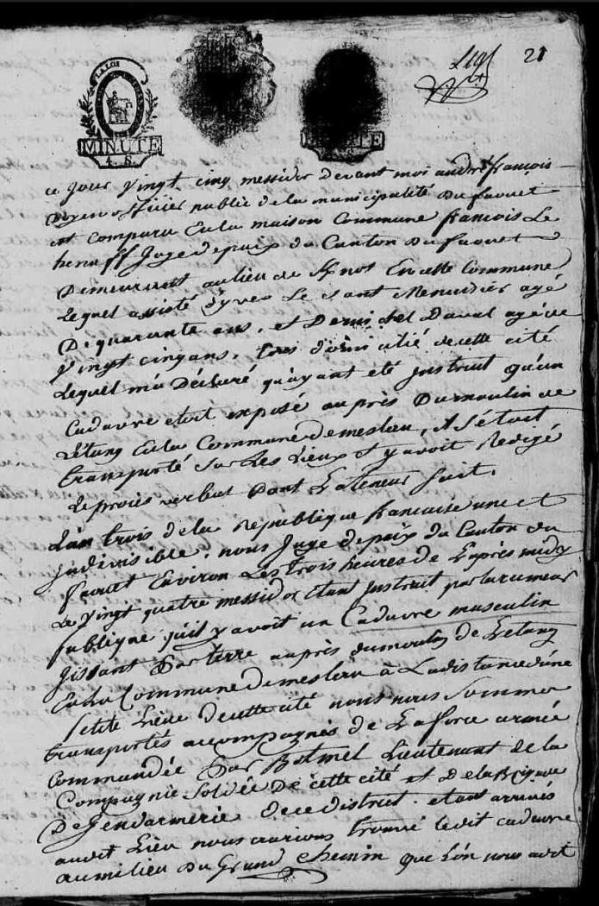 21
LA LOI
MINUTE
MINUTE
ce jour vingt cinq messidor devant moi andré françois
officier public de la municipalité du faouet
est comparu en la maison commune françois Le
henaff Juge depaix du Canton du faouet
Demeurant au lieu de en cette Commune
Lequel assisté d'yves Le Menuisier agé
De quarante ans, et Daval agé de
vingt cinq ans, tous domicilié de cette cité
Lequel m'a Déclaré qu'ayant eté Instruit qu'un
Cadavre etoit exposé au près Du moulin de
L'étang en la Commune de meslan, il s'étoit
transporté sur Les Lieux et y avoit Redigé
Le procès verbal Dont La teneur suit.
L'an trois de la République francaise une et
indivisible. nous Juge de paix du Canton du
faouet Environ Les trois heures de L'après midy
Le vingt quatre messidor etant Instruit par la rumeur
publique qu'il y avoit un Cadavre masculin
gissant Par terre au près du moulin de L'etang
en la Commune De meslan à La distance d'une
petite Lieue De cette cité nous nous sommes
transportés accompagnés de La force armée
commandée Par Botmel Lieutenant de la
Compagnie Soldée De cette cité et De la Brigade
De Gendarmerie de ce district. etant arrivés
audit Lieu nous aurions trouvé ledit cadavre
au milieu Du Grand chemin que L'on nous a dit